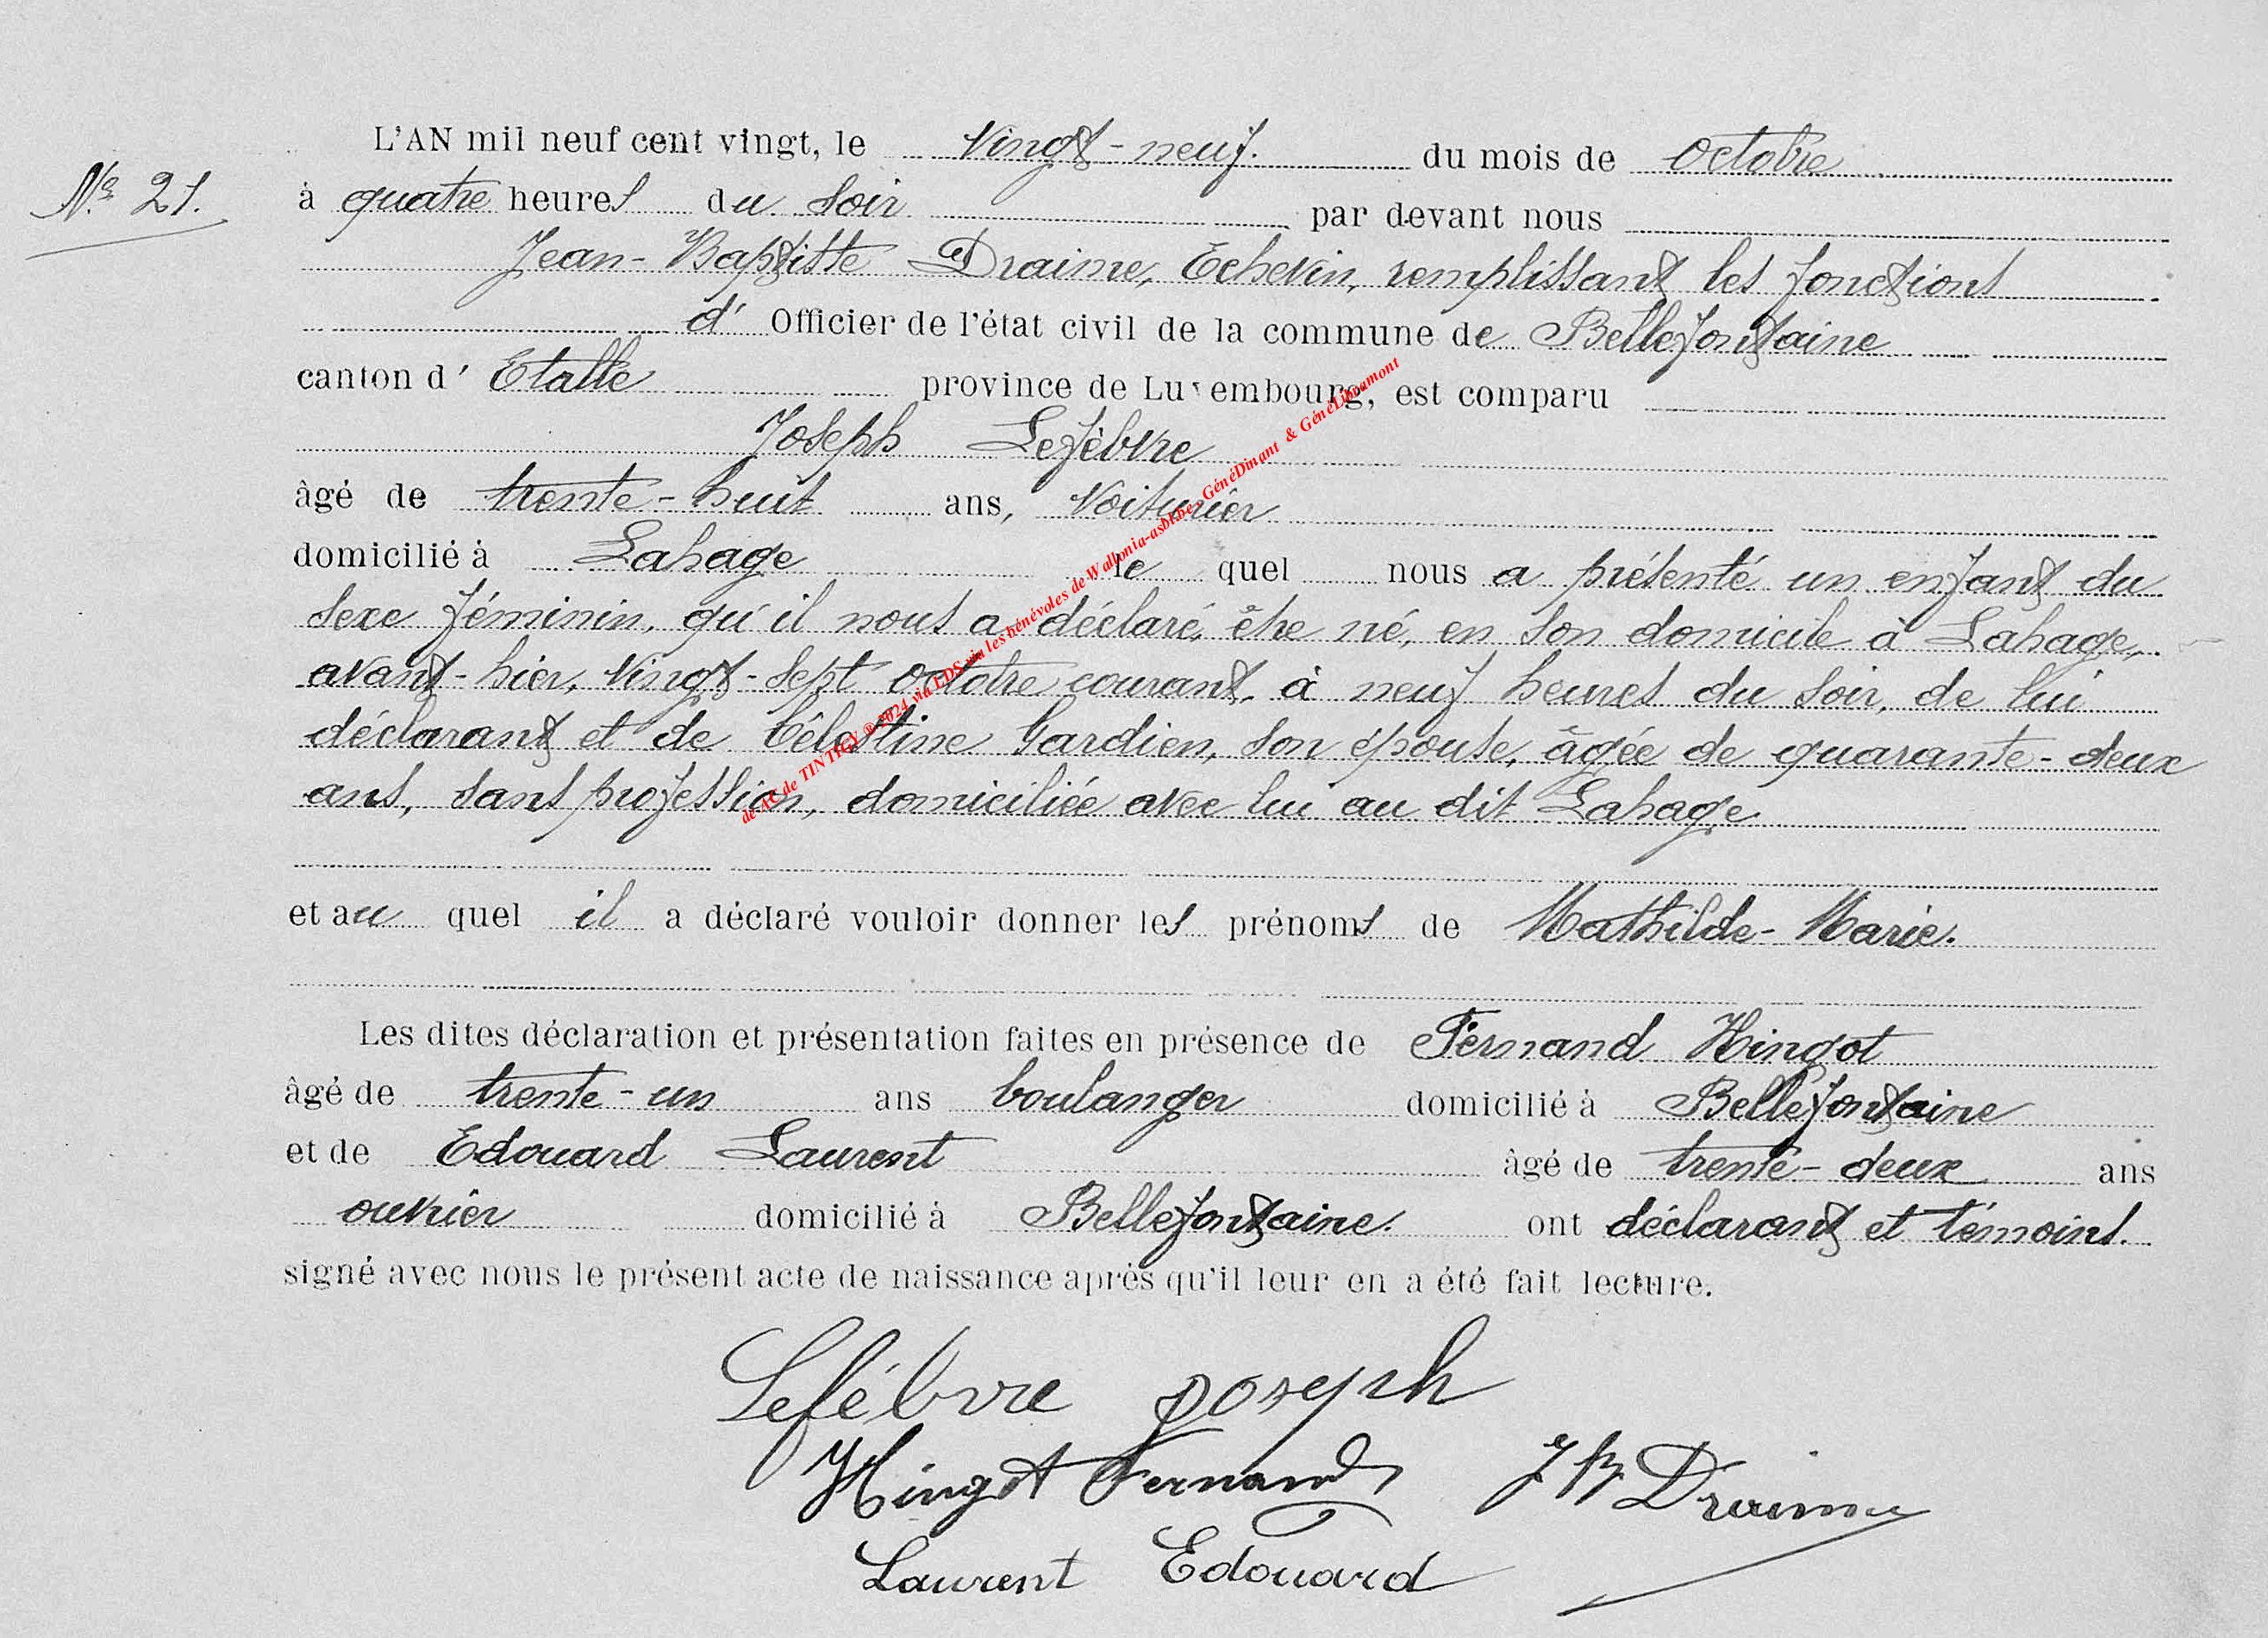 L'AN mil neuf cent vingt, le vingt-neuf. du mois de Octobre
N.º 21.
à quatre heures du soir par devant nous
Jean-Baptiste Draime, Echevin, remplissant les fonctions
d' Officier de l'état civil de la commune de Bellefontaine
canton d' Etalle province de Luxembourg, est comparu
Joseph Lefèbvre
âgé de trente-huit ans, voiturier
domicilié à Lahage le quel nous a présenté un enfant du
sexe féminin, qu'il nous a déclaré, être né, en son domicile à Lahage,
avant-hier, vingt-sept octobre courant, à neuf heures du soir, de lui
déclarant et de Célestine Gardien, son épouse, âgée de quarante-deux
ans, sans profession, domiciliée avec lui au dit Lahage
et au quel il a déclaré vouloir donner les prénoms de Mathilde-Marie.
Les dites déclaration et présentation faites en présence de Fernand Hingot
âgé de trente-un ans boulanger domicilié à Bellefontaine
et de Edouard Laurent âgé de trente-deux ans
ouvrier domicilié à Bellefontaine. ont déclarant et témoins.
signé avec nous le présent acte de naissance après qu'il leur en a été fait lecture.
Lefébvre Joseph
Hingot Fernand JB Draime
Laurent Edouard
de AC de TINTIGY ® 2024 via LDS via les bénévoles de Wallonia-asbl.be, GénéDinant & GénéLibramont